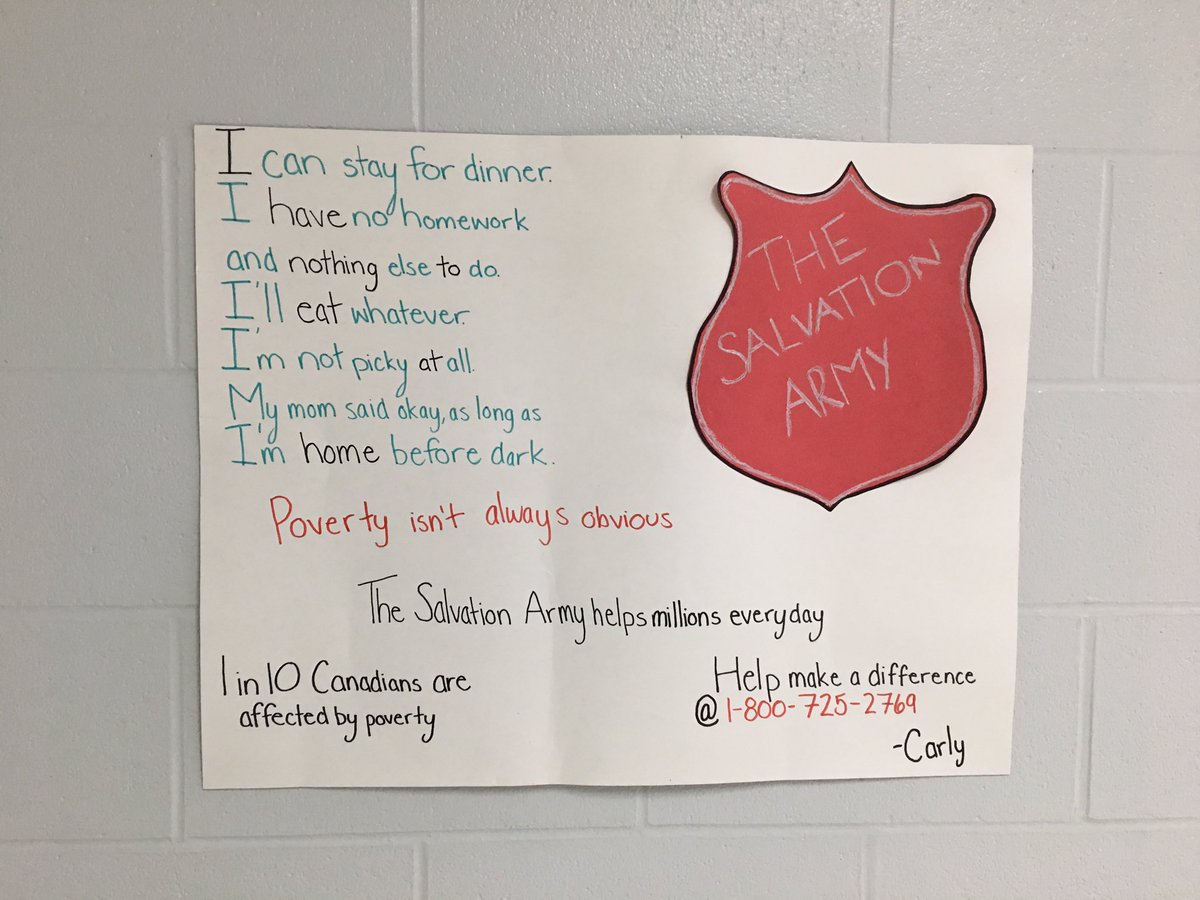 I can stay for dinner.
I have no homework
and nothing else to do.
I'll eat whatever.
I'm not picky at all.
My mom said okay, as long as
I'm home before dark.
THE
SALVATION
ARMY
Poverty isn't always obvious
The Salvation Army helps millions everyday
1 in 10 Canadians are
affected by poverty
Help make a difference
@ 1-800-725-2769
-Carly